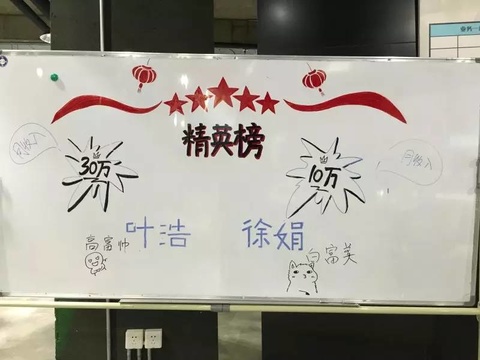 精英榜
月收入
30万
10万
月收入
叶浩
徐娟
高富帅
白富美